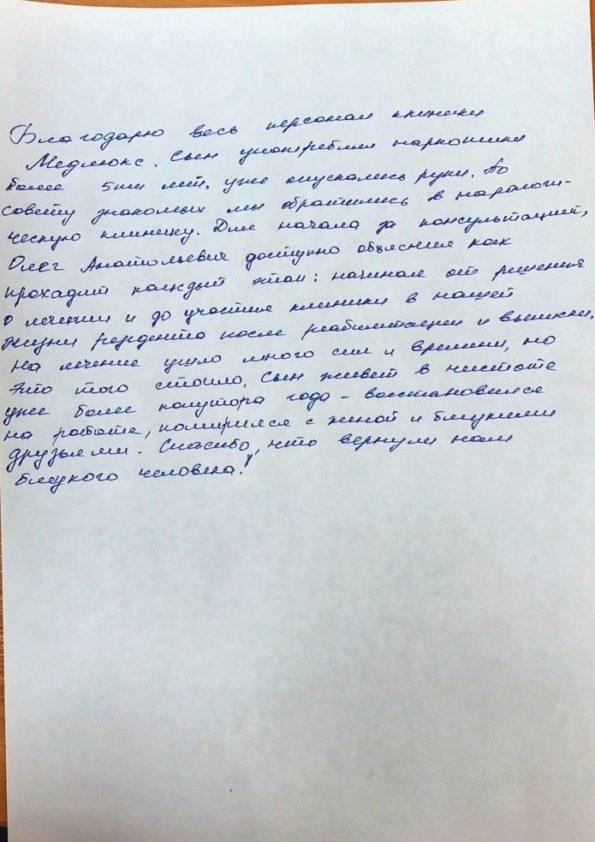 Благодарю весь персонал клиники
Медлюкс. Сын употреблял наркотики
более 5ти лет, уже опускались руки. По
совету знакомых мы обратились в нарологи-
ческую клинику. Для начала за консультацией,
Олег Анатольевич доступно объяснил как
проходит каждый этап: начиная от решения
о лечении и до участия клиники в нашей
жизни резидента после реабилитации и выписки.
На лечение ушло много сил и времени, но
это того стоило. Сын живет в чистоте
уже более полутора года - восстановился
на работе, помирился с женой и близкими
друзьями. Спасибо, что вернули нам
близкого человека!